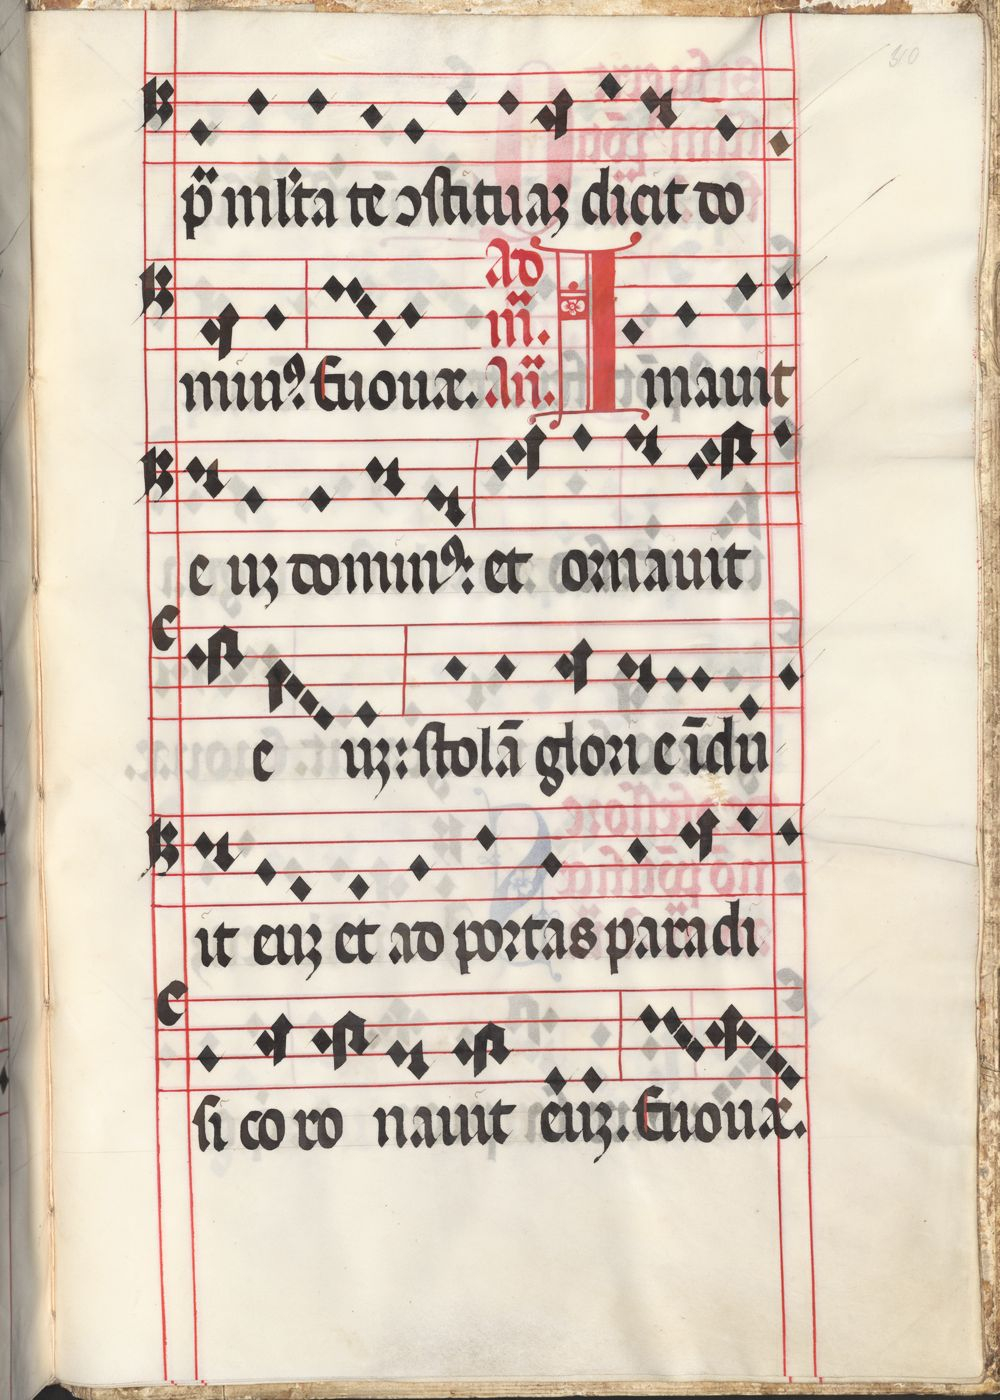 p̄ ml̄ta te ꝯstituaꝫ dicit do
minꝰ. Euouæ. Ad m̄. Añ. Amauit
e uꝫ dominꝰ: et ornauit
e uꝫ: stolā glori e īdu
it euꝫ et ad portas paradi
si co ro nauit euꝫ. Euouæ.